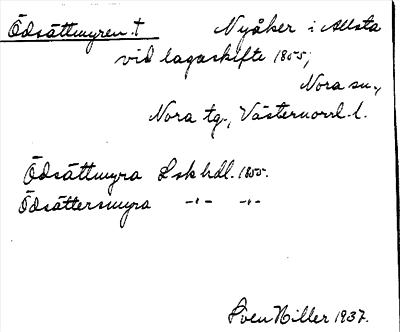 Ödsättmyren. † Nyåker i Allsta
vid lagaskifte 1855;
Nora sn.,
Nora tg., Västernorrl. l.
Ödsättmyra L sk hdl. 1855.
Ödsättersmyra -"- -"-
Sven Hiller 1937.